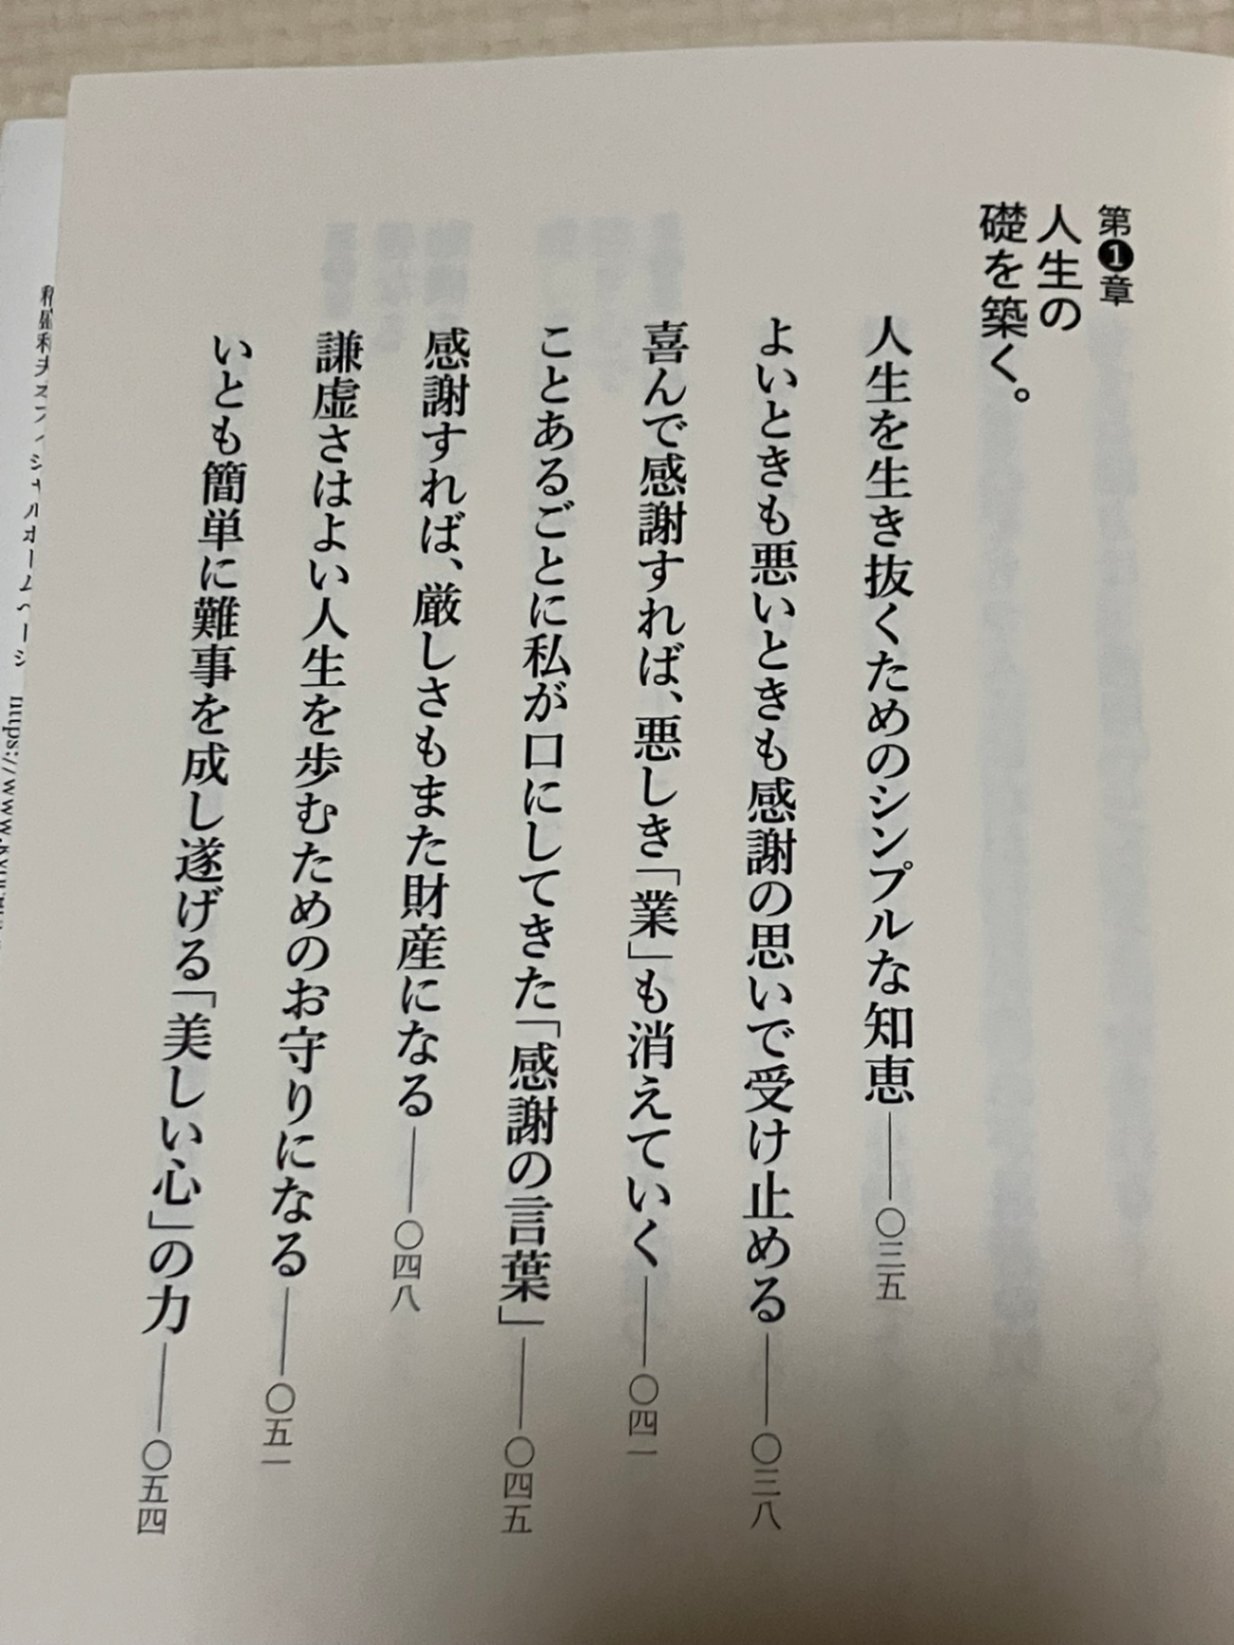 第❶章
人生の
礎を築く。
人生を生き抜くためのシンプルな知恵──〇三五
よいときも悪いときも感謝の思いで受け止める──〇三八
喜んで感謝すれば、悪しき「業」も消えていく──〇四一
ことあるごとに私が口にしてきた「感謝の言葉」──〇四五
感謝すれば、厳しさもまた財産になる──〇四八
謙虚さはよい人生を歩むためのお守りになる──〇五一
いとも簡単に難事を成し遂げる「美しい心」の力──〇五四
オフィシャルホームページ https://www.